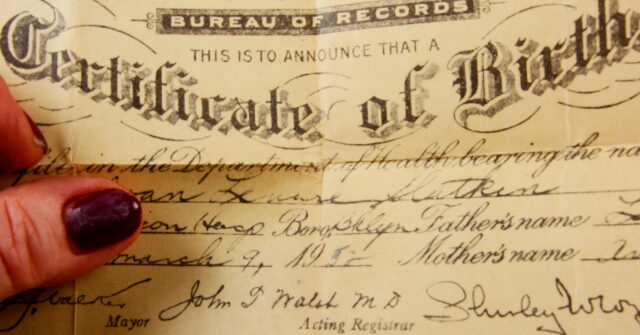 BUREAU OF RECORDS
THIS IS TO ANNOUNCE THAT A
Certificate of Birth
file in the Department of Health bearing the na
Slatkin
Hosp Boro Bklyn Father's name
march 9, 195 Mother's name
John J Walsh M D Shirley
Mayor Acting Registrar